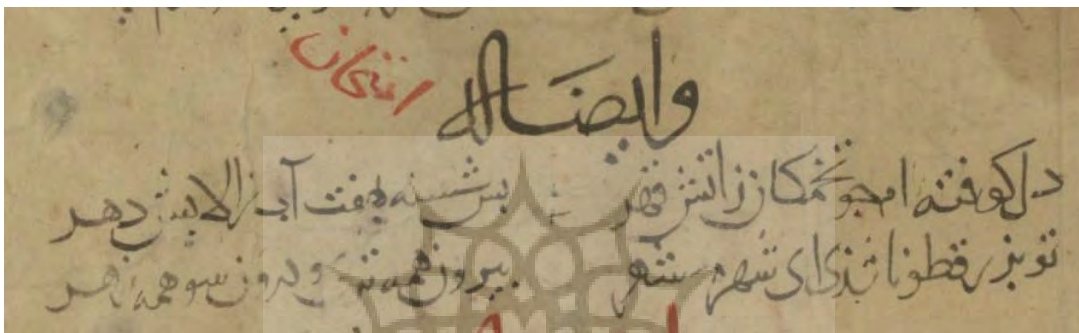 امتحان
وایضا له
دل کوفته ام جو تخمکان زاتش قهر بس شسته بهفت آب ز الایش دهر
تو بزر قطونا شذی ای شهره شهر بیرون همه و درون سو همه زهر